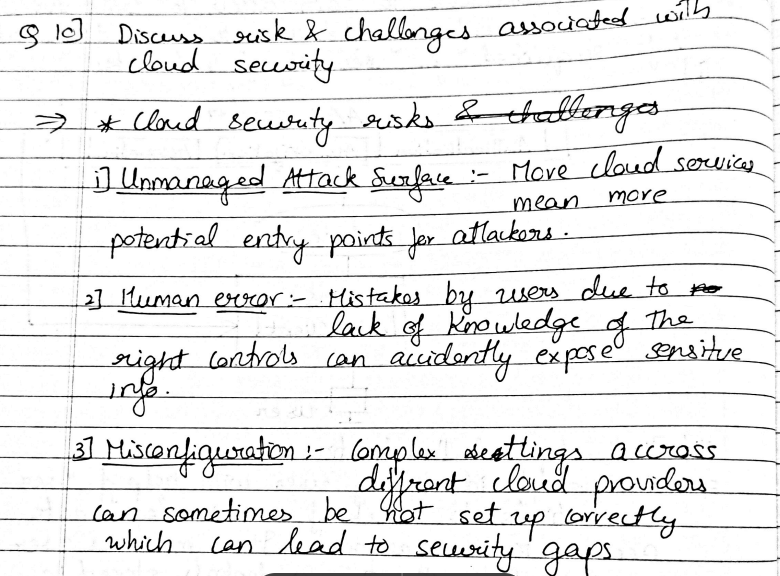 Q 10] Discuss risk & challenges associated with
cloud security
⇒ * Cloud security risks & challenges
i] Unmanaged Attack Surface :- More cloud services
mean more
potential entry points for attackers.
2] Human error :- Mistakes by users due to no
lack of knowledge of the
right controls can accidently expose sensitve
info.
3] Misconfiguration :- Complex settlings accross
diffrent cloud providers
can sometimes be not set up correctly
which can lead to security gaps